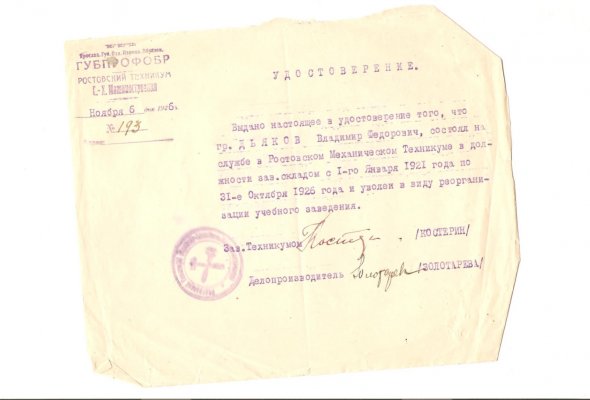 Ярослав. Губ. Отд. Народн. Образов.
ГУБПРОФОБР
РОСТОВСКИЙ ТЕХНИКУМ
Ноября 6 дня 1926
№ 193
УДОСТОВЕРЕНИЕ.
Выдано настоящее в удостоверение того, что
гр. ДЬЯКОВ Владимир Федорович, состоял на
службе в Ростовском Механическом Техникуме в дол-
жности зав. складом с I-го Января 1921 года по
31-е Октября 1926 года и уволен в виду реоргани-
зации учебного заведения.
Зав. Техникумом /КОСТЕРИН/
Делопроизводитель Золотарева /ЗОЛОТАРЕВА/